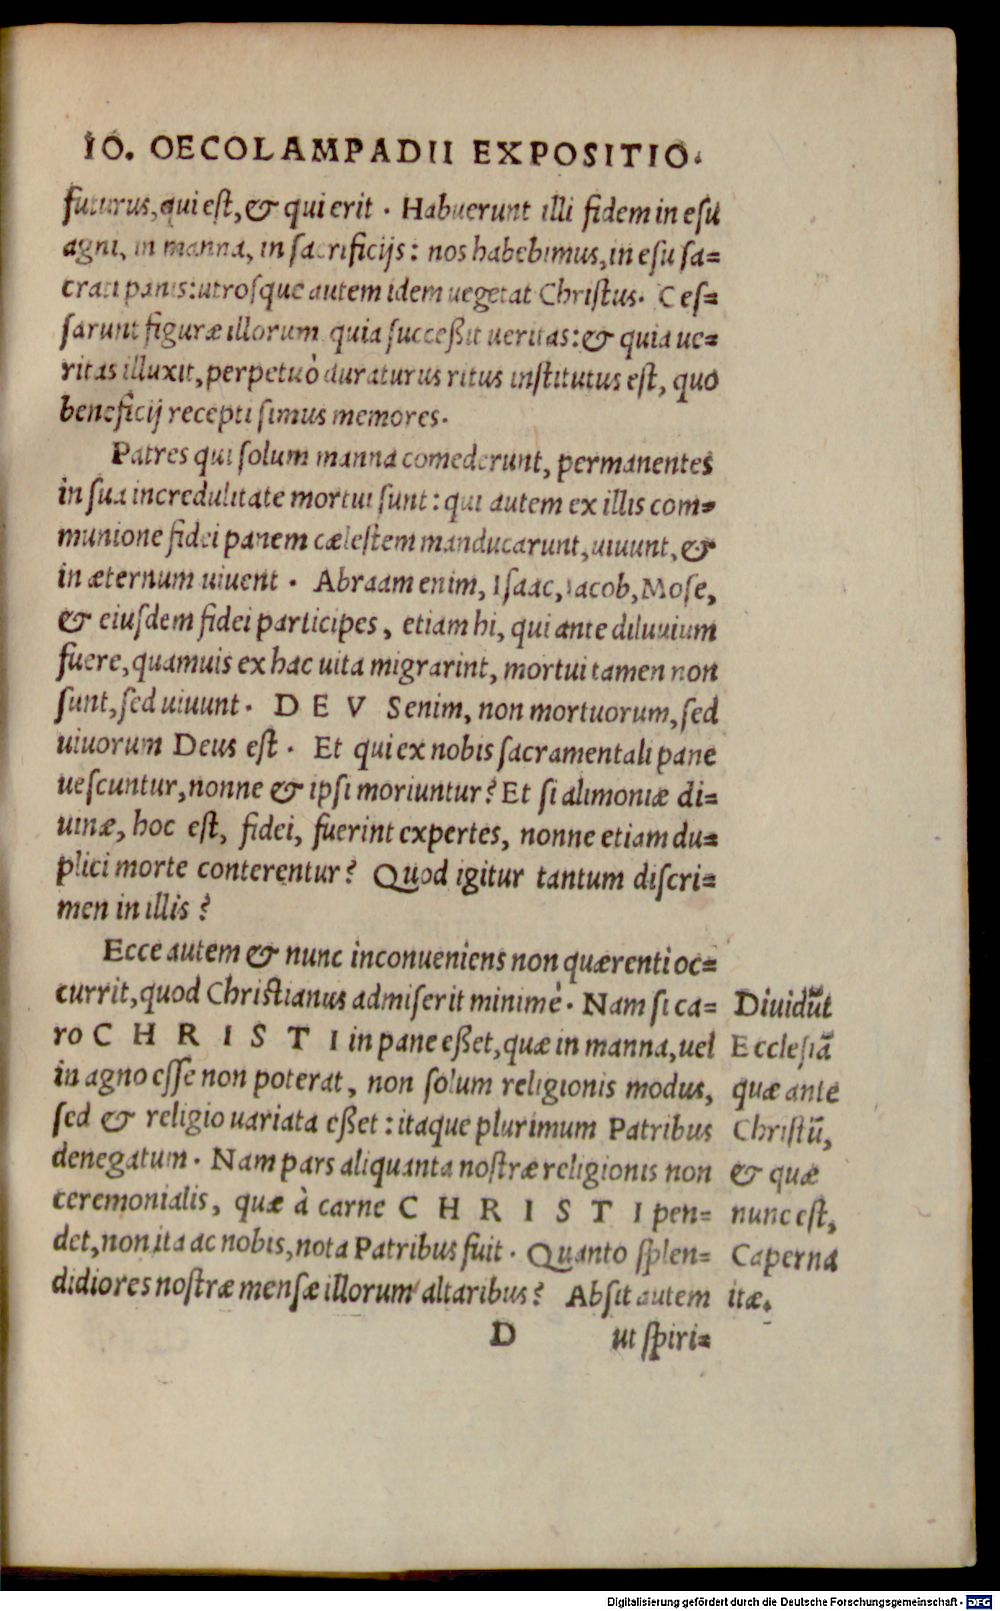 IO. OECOLAMPADII EXPOSITIO.
futurus, qui est, & qui erit. Habuerunt illi fidem in esu
agni, in manna, in sacrificijs: nos habebimus, in esu sa=
crati panis: utrosque autem idem uegetat Christus. Ces=
sarunt figuræ illorum quia successit ueritas: & quia ue=
ritas illuxit, perpetuò duraturus ritus institutus est, quo
beneficij recepti simus memores.
Patres qui solum manna comederunt, permanentes
in sua incredulitate mortui sunt: qui autem ex illis com=
munione fidei panem cælestem manducarunt, uiuunt, &
in æternum uiuent. Abraam enim, Isaac, Iacob, Mose,
& eiusdem fidei participes, etiam hi, qui ante diluuium
fuere, quamuis ex hac uita migrarint, mortui tamen non
sunt, sed uiuunt. D E V S enim, non mortuorum, sed
uiuorum Deus est. Et qui ex nobis sacramentali pane
uescuntur, nonne & ipsi moriuntur? Et si alimoniæ di=
uinæ, hoc est, fidei, fuerint expertes, nonne etiam du=
plici morte conterentur? Quod igitur tantum discri=
men in illis?
Ecce autem & nunc inconueniens non quærenti oc=
currit, quod Christianus admiserit minimè. Nam si ca=
ro C H R I S T I in pane esset, quæ in manna, uel
in agno esse non poterat, non solum religionis modus,
sed & religio uariata esset: itaque plurimum Patribus
denegatum. Nam pars aliquanta nostræ religionis non
ceremonialis, quæ à carne C H R I S T I pen=
det, non ita ac nobis, nota Patribus fuit. Quanto splen=
didiores nostræ mensæ illorum altaribus? Absit autem
Diuidũt
Ecclesiã
quæ ante
Christũ,
& quæ
nunc est,
Caperna
itæ.
D ut spiri=
Digitalisierung gefördert durch die Deutsche Forschungsgemeinschaft - DFG